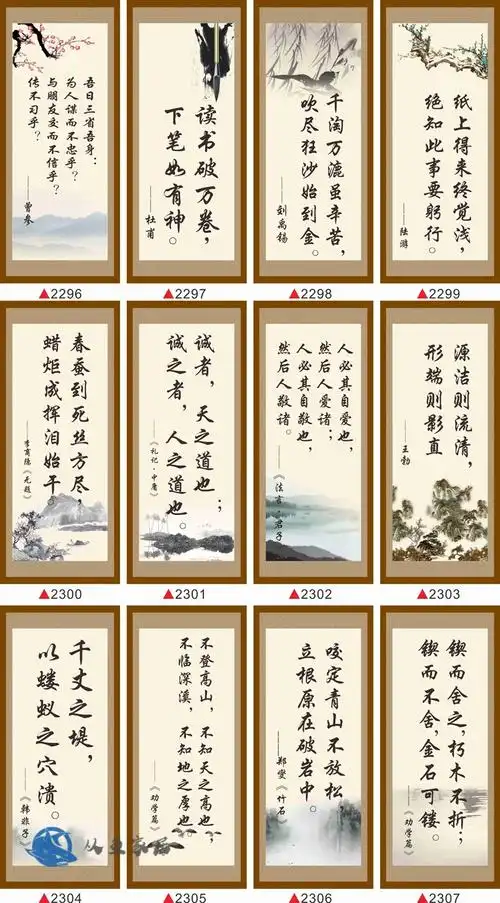 吾日三省吾身：
为人谋而不忠乎？
与朋友交而不信乎？
传不习乎？
——曾参
▲2296
读书破万卷，
下笔如有神。
——杜甫
▲2297
千淘万漉虽辛苦，
吹尽狂沙始到金。
——刘禹锡
▲2298
纸上得来终觉浅，
绝知此事要躬行。
——陆游
▲2299
春蚕到死丝方尽，
蜡炬成挥泪始干。
——李商隐《无题》
▲2300
诚者，天之道也；
诚之者，人之道也。
——《礼记·中庸》
▲2301
人必其自爱也，
然后人爱诸；
人必其自敬也，
然后人敬诸。
——《法言·君子》
▲2302
源洁则流清，
形端则影直
——王勃
▲2303
千丈之堤，
以蝼蚁之穴溃。
——《韩非子》
▲2304
不登高山，不知天之高也；
不临深溪，不知地之厚也
——《劝学篇》
▲2305
咬定青山不放松，
立根原在破岩中。
——郑燮《竹石》
▲2306
锲而舍之，朽木不折；
锲而不舍，金石可镂。
——《劝学篇》
▲2307